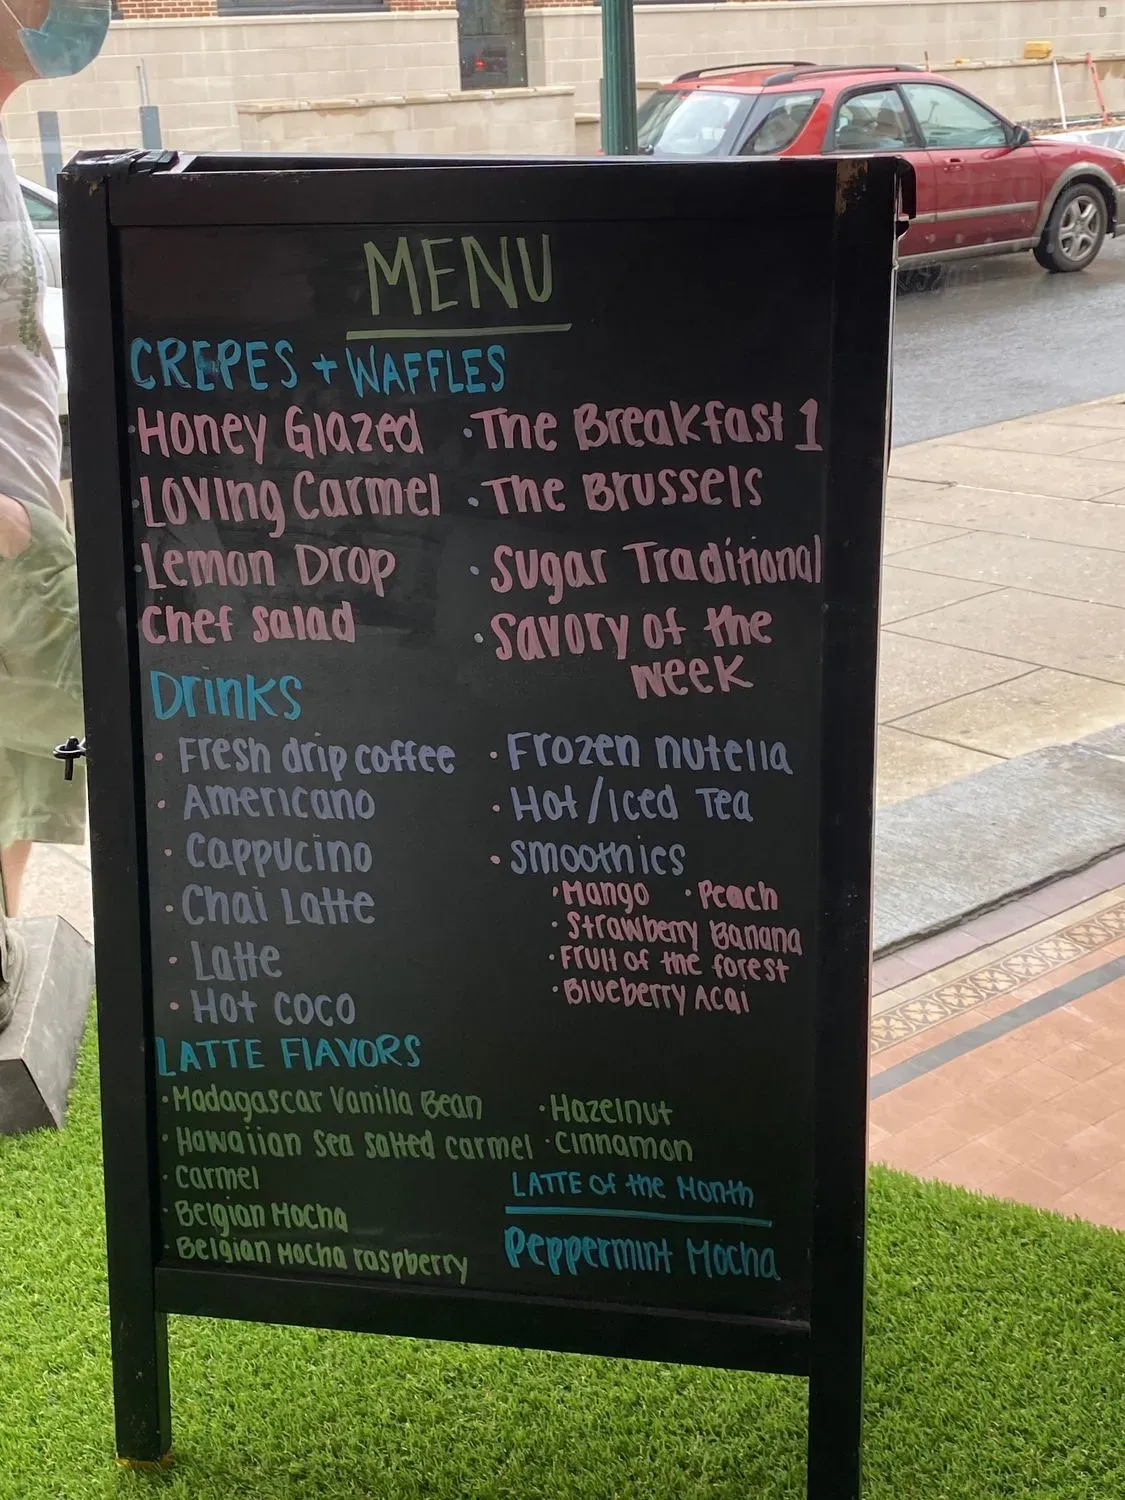 MENU
CREPES + WAFFLES
·Honey Glazed
·Loving Carmel
·Lemon Drop
Chef Salad
·The Breakfast 1
·The Brussels
·Sugar Traditional
·Savory of the
week
Drinks
· Fresh drip coffee
· Americano
· Cappucino
· Chai Latte
· Latte
· Hot coco
· Frozen nutella
· Hot/Iced Tea
· smoothies
·Mango ·Peach
·Strawberry Banana
·Fruit of the forest
·Blueberry Acai
LATTE FLAVORS
·Madagascar Vanilla Bean
·Hawaiian Sea salted carmel
·carmel
·Belgian Mocha
·Belgian Mocha raspberry
·Hazelnut
·Cinnamon
LATTE of the Month
Peppermint Mocha